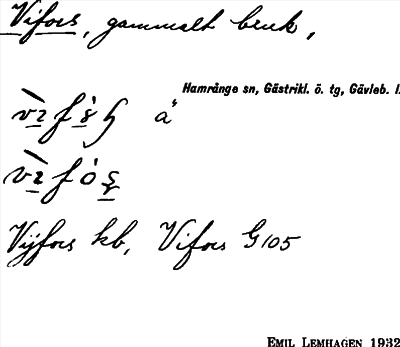 Vifors, gammalt bruk,
Hamrånge sn, Gästrikl. ö. tg, Gävleb. l.
Vijfors kb, Vifors G105
EMIL LEMHAGEN 1932